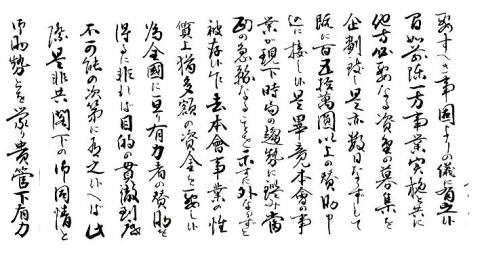 要すへき事固よりの儀に有之候
間如前陳一方事業実施と共に
他方必要なる資金の募集を
企劃致し是亦数日ならずして
既に百五拾萬圓以上の賛助申
込に接し候は是畢竟本会の事
業が現下時局の趨勢に鑑み当
面の急務なることを示すに外ならずと
被存候乍去本会事業の性
質上猶多額の資金を要し
為全国に亘り有力者の賛助を
得るに非れは目的の貫徹到底
不可能の次第に有之候へば此
際是非共閣下の御同情と
御助勢とを蒙り貴管下有力